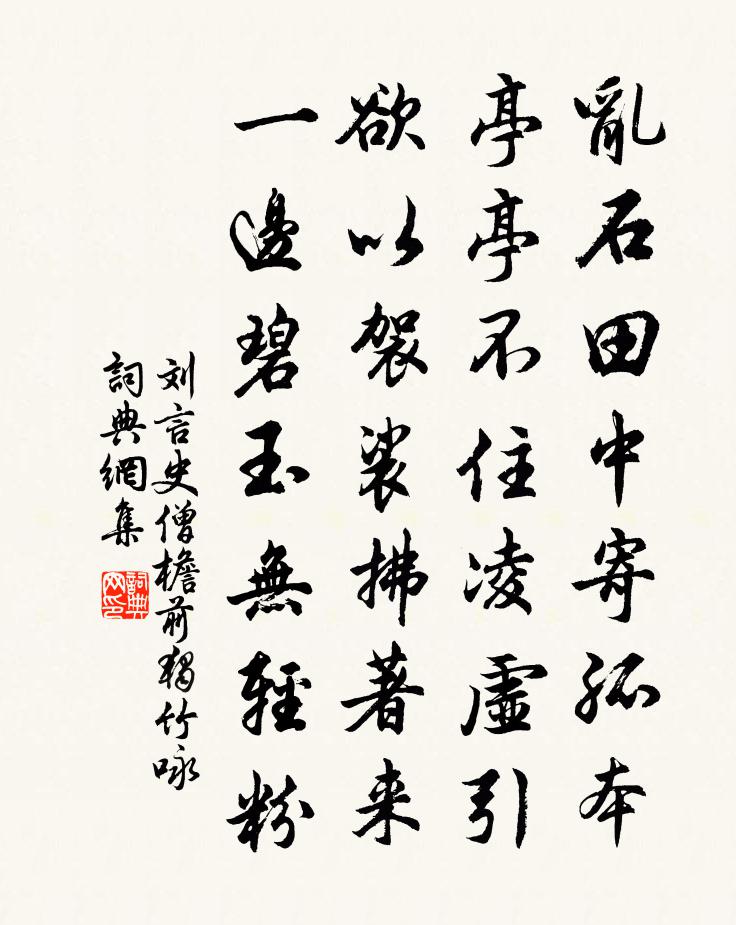 亂石田中寄孤本
亭亭不住凌虛引
欲以袈裟拂著来
一邊碧玉無輕粉
刘言史僧檐前獨竹咏
詞典網集
詞典网印